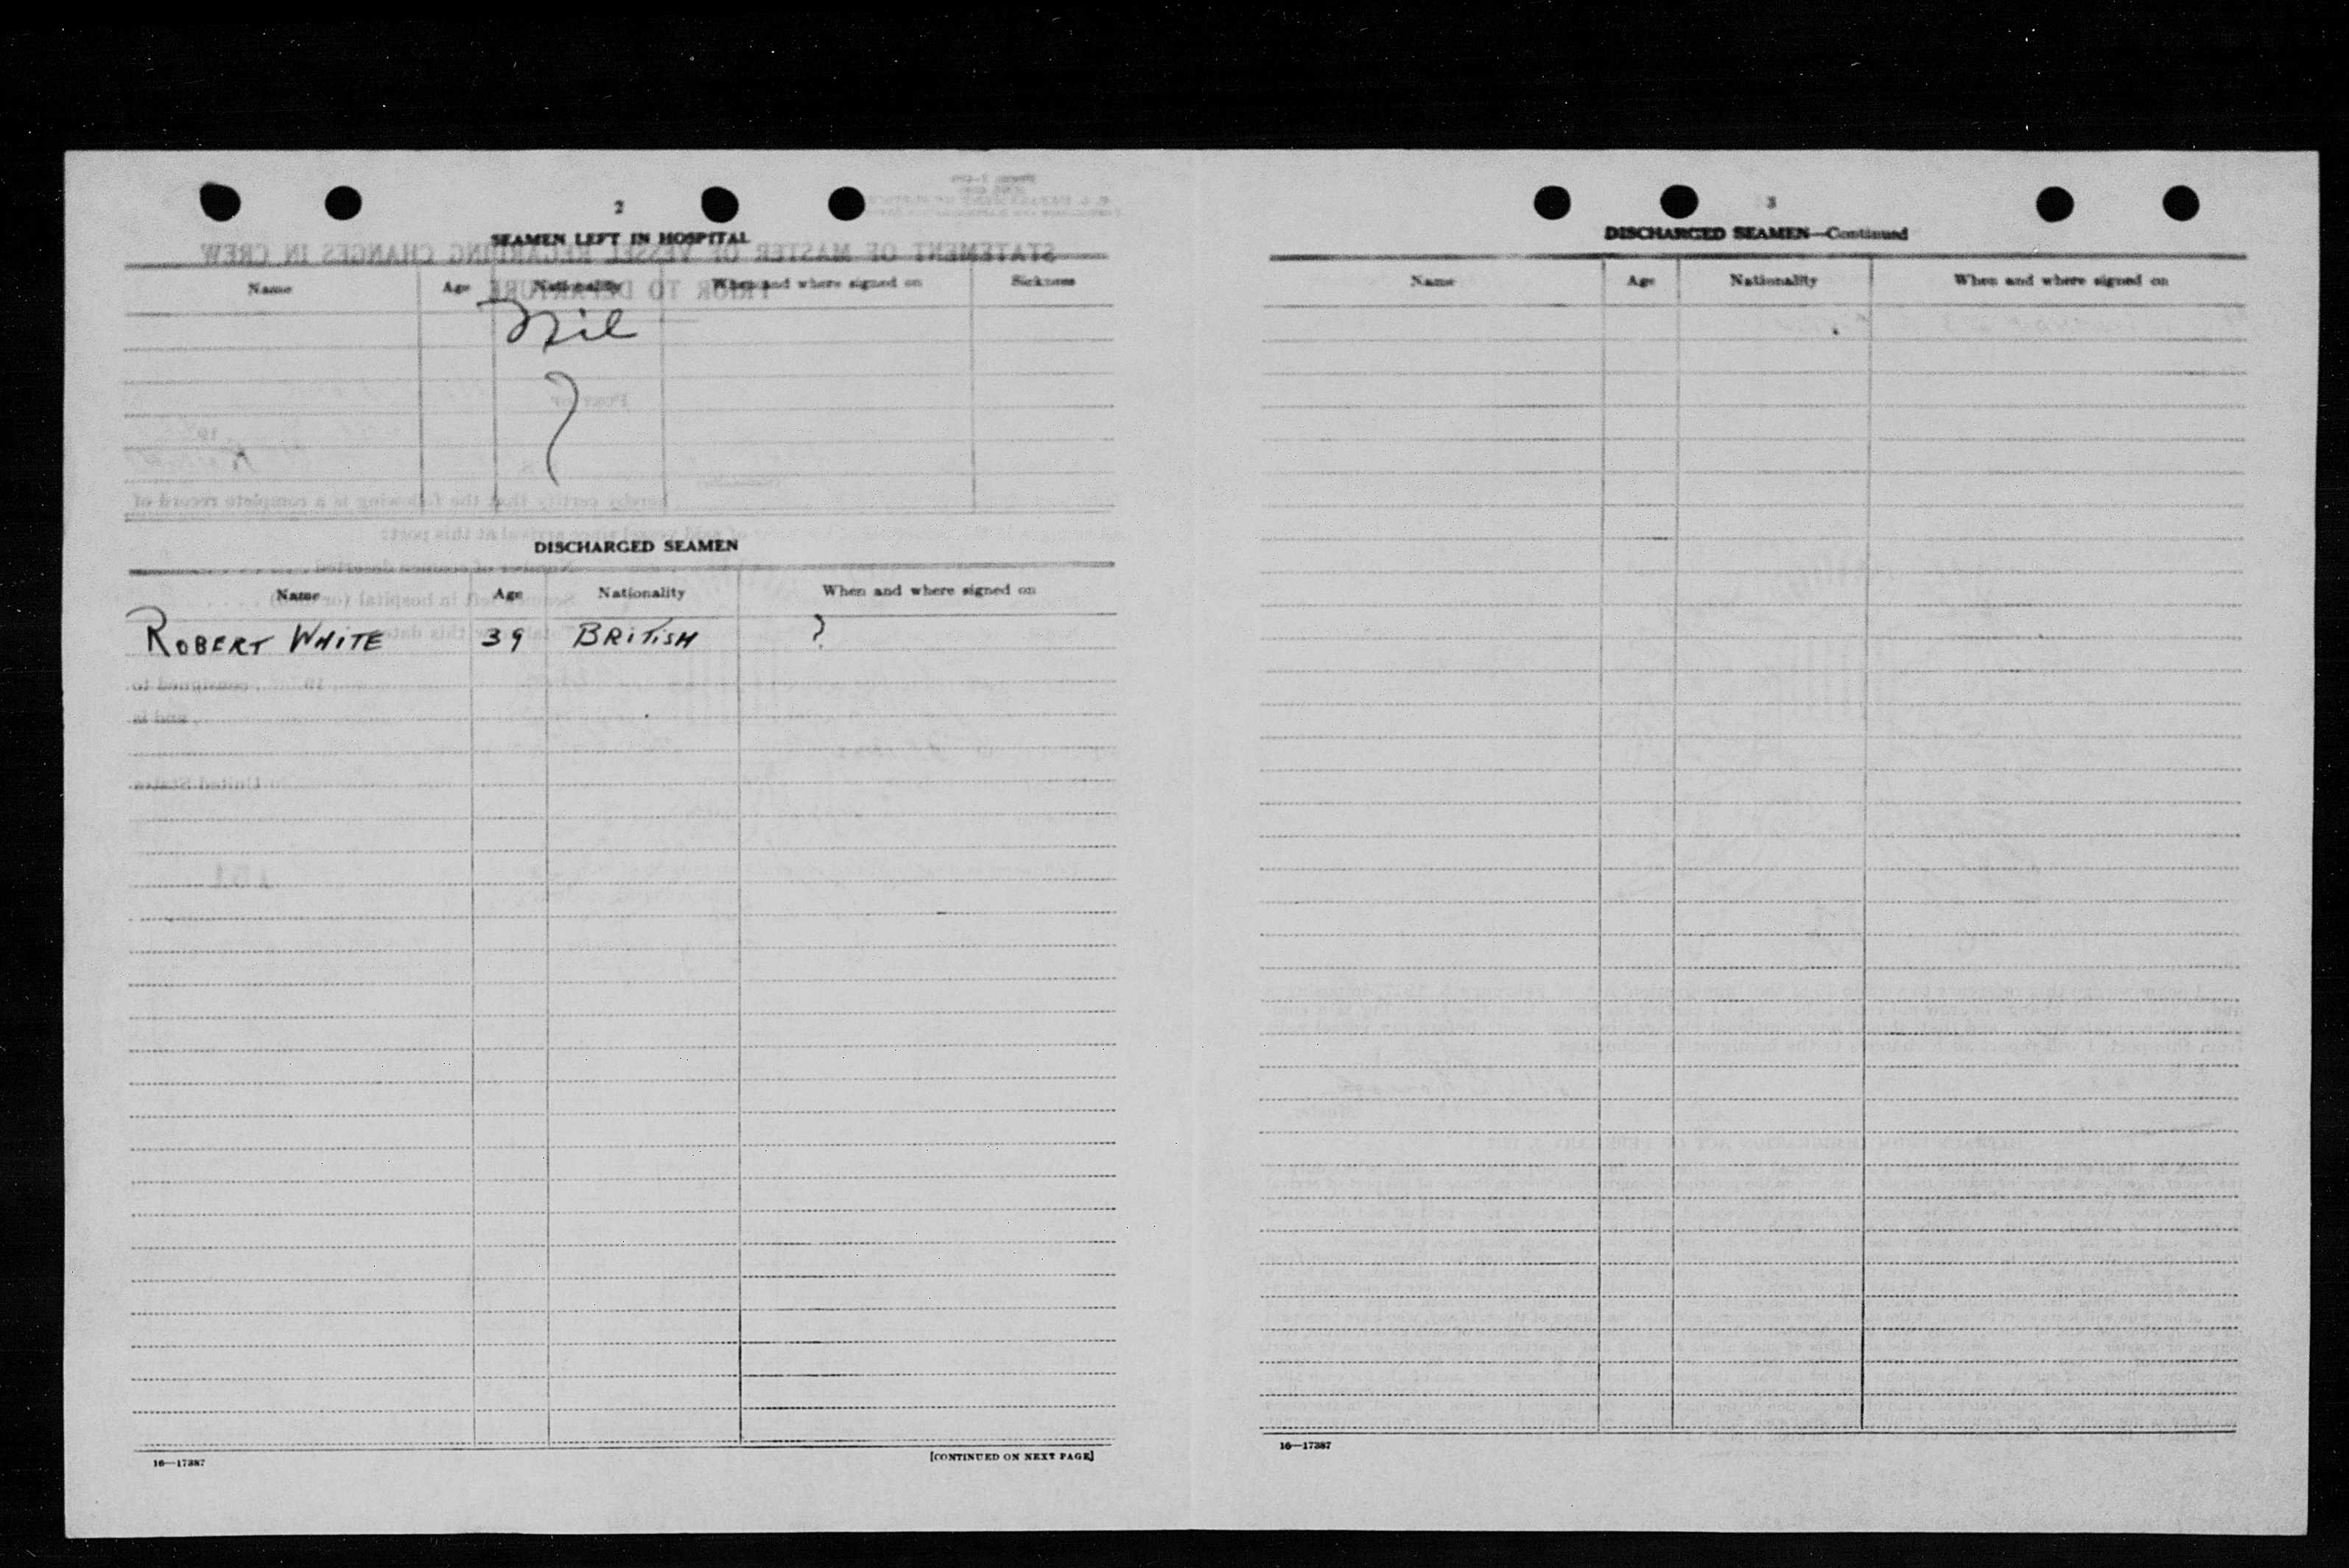 2
SEAMEN LEFT IN HOSPITAL
Name Age Nationality When and where signed on Sickness
Nil
DISCHARGED SEAMEN
Name Age Nationality When and where signed on
ROBERT WHITE 39 BRITISH ?
16—17387
[CONTINUED ON NEXT PAGE]
3
DISCHARGED SEAMEN—Continued
Name Age Nationality When and where signed on
16—17387